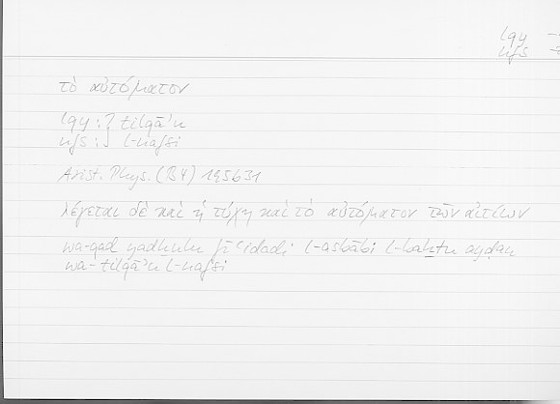 lqy
nfs
τὸ αὐτόματον
lqy : } tilqāʾu
nfs : } l-nafsi
Arist. Phys. (B4) 195b31
λέγεται δὲ καὶ ἡ τύχη καὶ τὸ αὐτόματον τῶν αἰτίων
wa-qad yadḫulu fī ʿidadi l-asbābi l-baḫtu ayḍan
wa-tilqāʾu l-nafsi